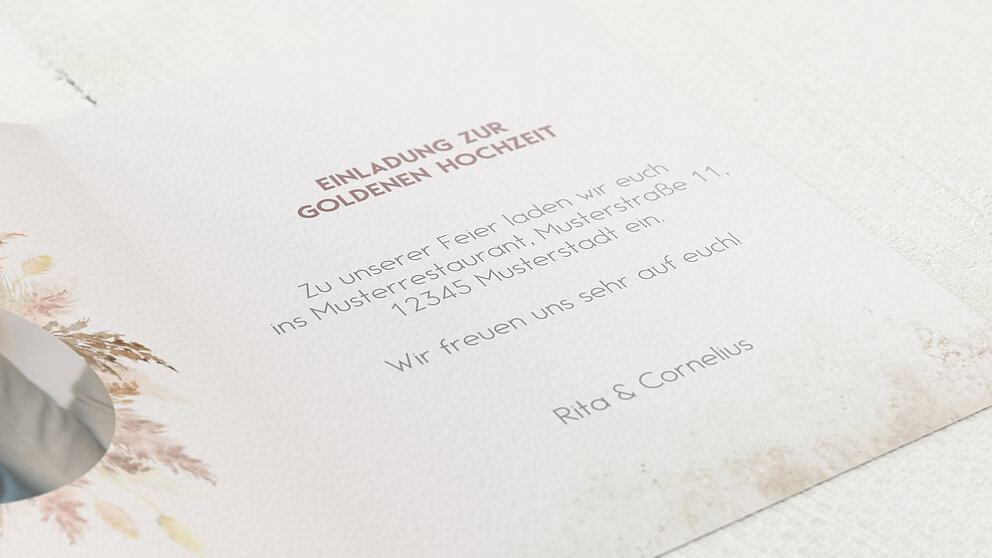 EINLADUNG ZUR
GOLDENEN HOCHZEIT
Zu unserer Feier laden wir euch
ins Musterrestaurant, Musterstraße 11,
12345 Musterstadt ein.
Wir freuen uns sehr auf euch!
Rita & Cornelius